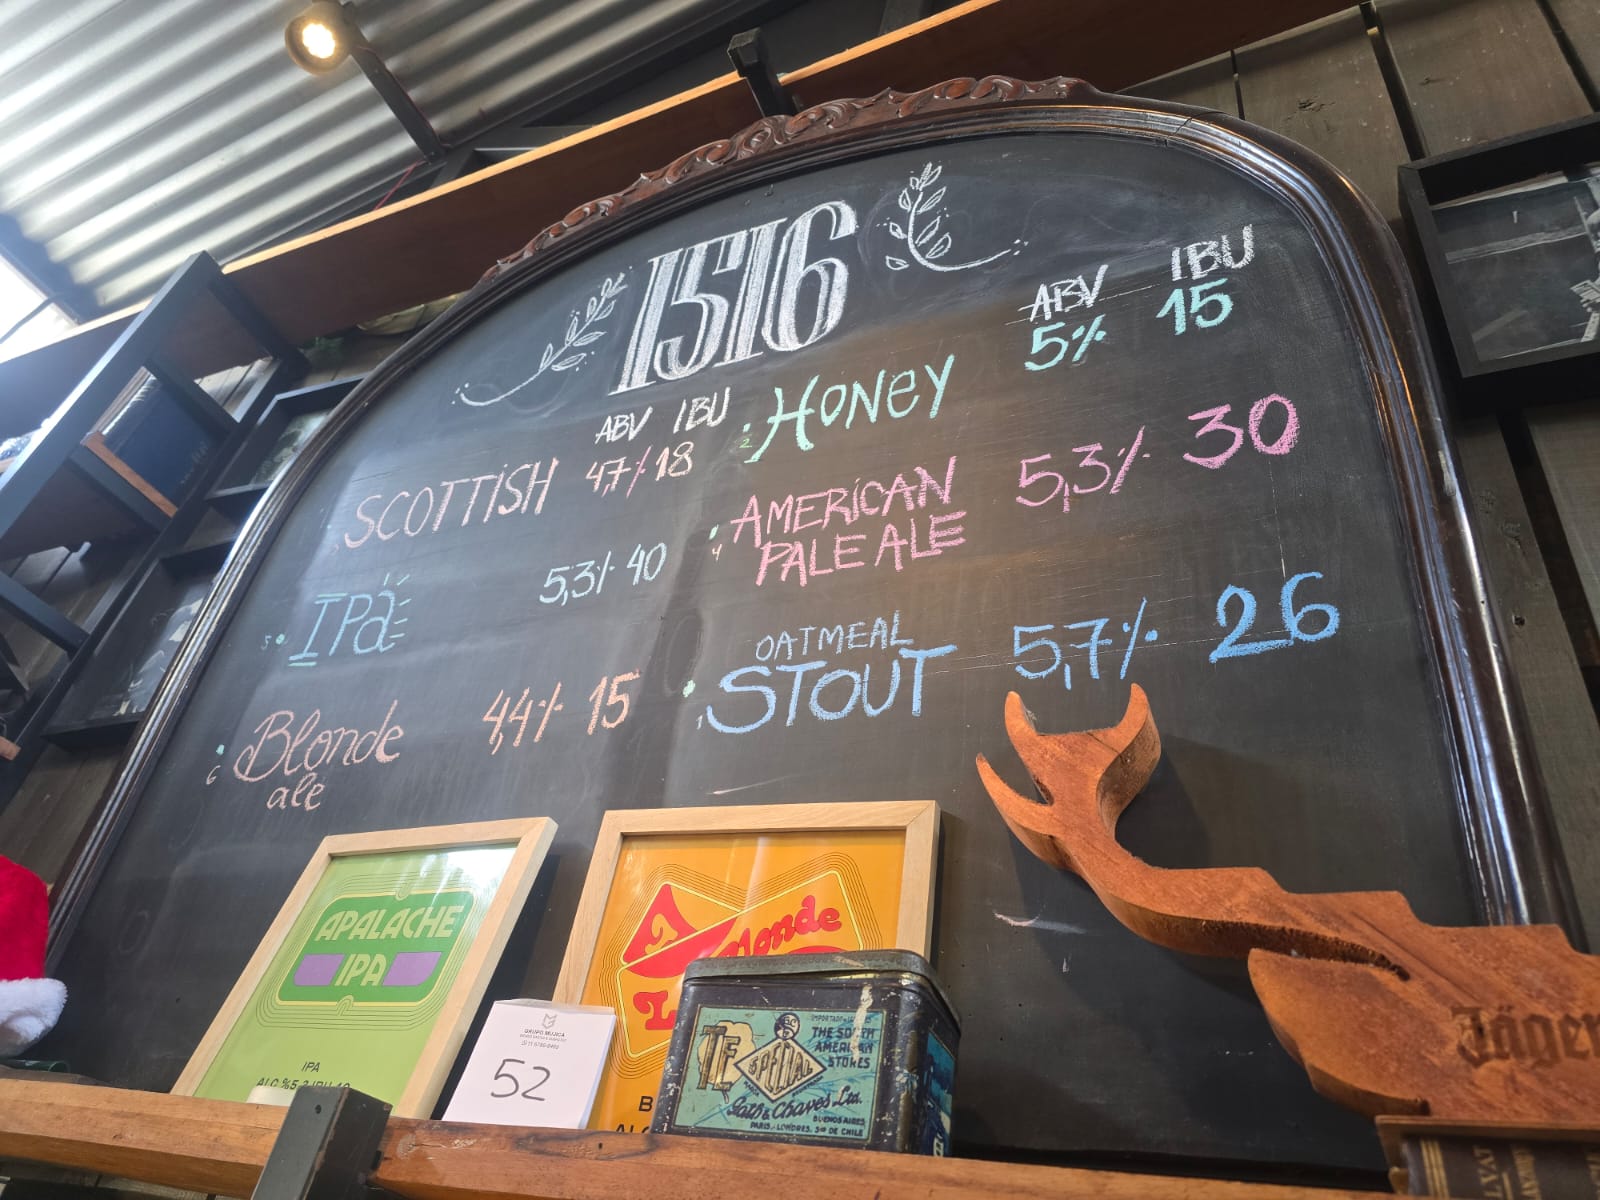 1516
ABV IBU
SCOTTISH 4,7% 18
5 IPa 5,3% 40
6 Blonde 4,4% 15
ale
ABV IBU
2 HONEY 5% 15
4 AMERICAN 5,3% 30
PALE ALE
OATMEAL
STOUT 5,7% 26
APALACHE
IPA
IPA
ALC %5,3 IBU 40
Blonde
52
GRUPO MUJICA
TE
ESPECIAL
IMPORTADO
THE SOUTH
AMERICAN
STORES
Gath & Chaves Ltd.
BUENOS AIRES
PARIS, LONDRES, SGO DE CHILE